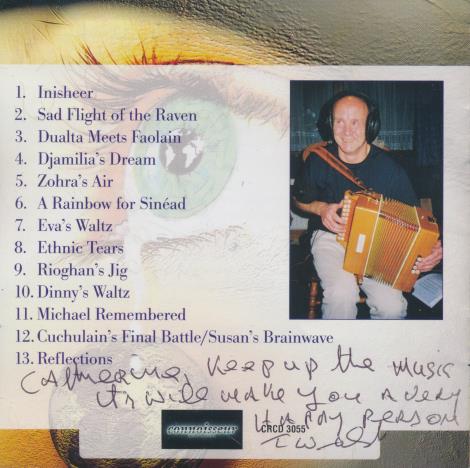 1. Inisheer
2. Sad Flight of the Raven
3. Dualta Meets Faolain
4. Djamilia's Dream
5. Zohra's Air
6. A Rainbow for Sinéad
7. Eva's Waltz
8. Ethnic Tears
9. Rioghan's Jig
10. Dinny's Waltz
11. Michael Remembered
12. Cuchulain's Final Battle/Susan's Brainwave
13. Reflections
Catherine, Keep up the music
its will make you a very
HAPPY PERSON
connoisseur CRCD 3055